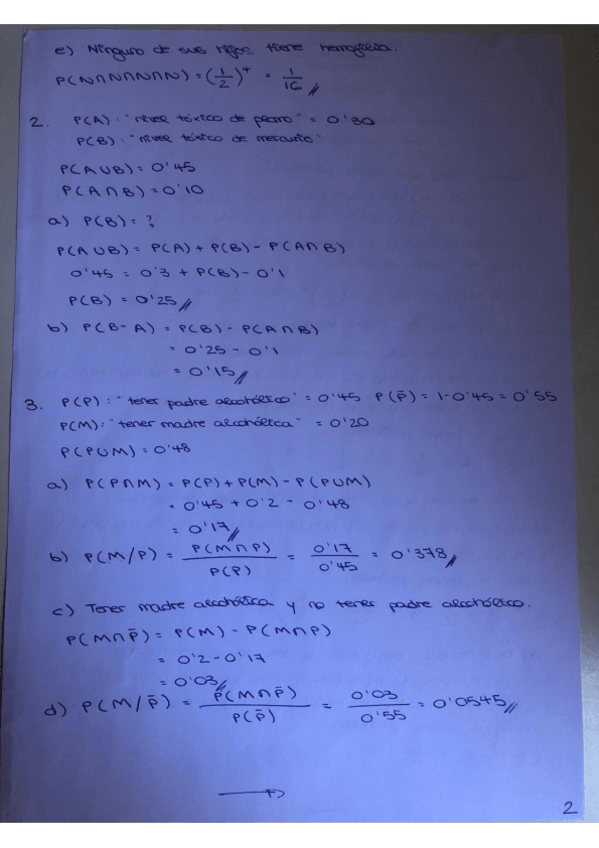 e) Ninguno de sus hijos tiene hemofilia.
P(N∩N∩N∩N) = (1/2)⁴ = 1/16 //
2. P(A): "nivel tóxico de plomo" = 0'30
P(B): "nivel tóxico de mercurio"
P(A∪B) = 0'45
P(A∩B) = 0'10
a) P(B) = ?
P(A∪B) = P(A) + P(B) - P(A∩B)
0'45 = 0'3 + P(B) - 0'1
P(B) = 0'25 //
b) P(B-A) = P(B) - P(A∩B)
= 0'25 - 0'1
= 0'15 //
3. P(P): "tener padre alcohólico" = 0'45 P(P̄) = 1-0'45 = 0'55
P(M): "tener madre alcohólica" = 0'20
P(P∪M) = 0'48
a) P(P∩M) = P(P) + P(M) - P(P∪M)
= 0'45 + 0'2 - 0'48
= 0'17 //
b) P(M/P) = P(M∩P) / P(P) = 0'17 / 0'45 = 0'378 //
c) Tener madre alcohólica y no tener padre alcohólico.
P(M∩P̄) = P(M) - P(M∩P)
= 0'2 - 0'17
= 0'03 //
d) P(M/P̄) = P(M∩P̄) / P(P̄) = 0'03 / 0'55 = 0'0545 //
→
2